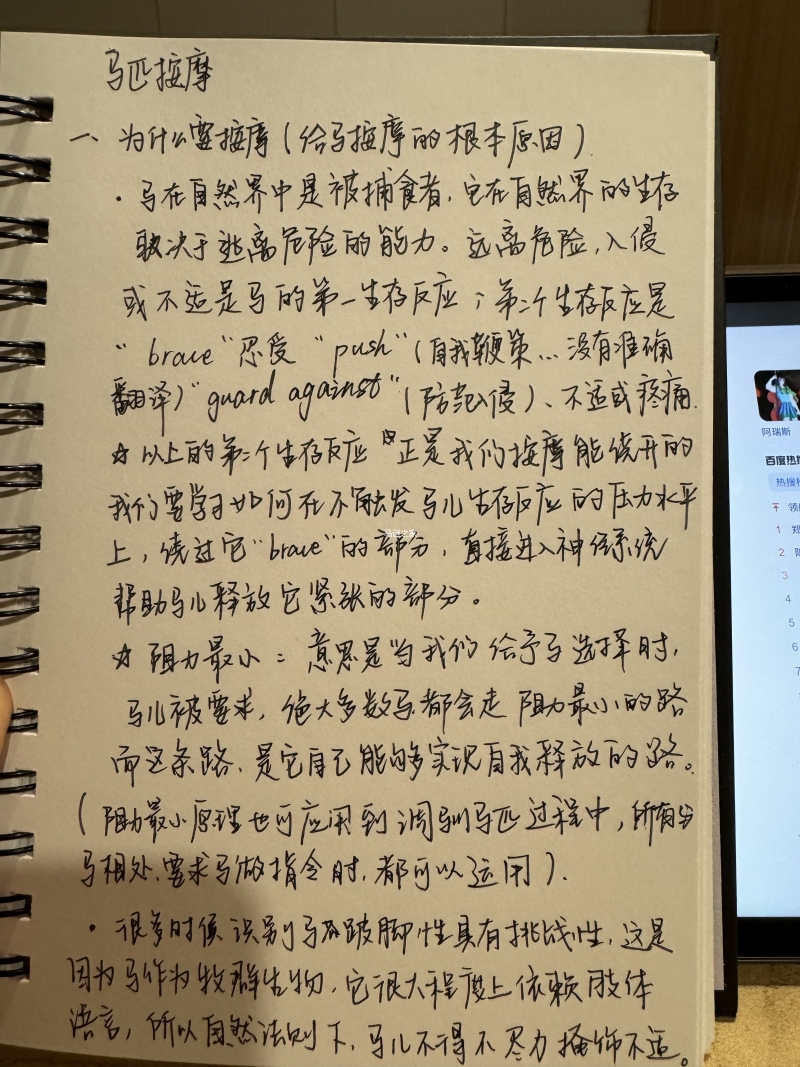 马匹按摩
一、为什么要按摩（给马按摩的根本原因）
·马在自然界中是被捕食者，它在自然界的生存
取决于逃离危险的能力。远离危险，入侵
或不适是马的第一生存反应；第二个生存反应是
“brace”忍受“push”（自我鞭策…没有准确
翻译）“guard against”（防范入侵）、不适或疼痛.
☆以上的第二个生存反应 正是我们按摩能绕开的
我们要学习如何在不触发马儿生存反应的压力水平
上，绕过它“brace”的部分，直接进入神经系统
帮助马儿释放它紧张的部分。
☆ 阻力最小 = 意思是当我们给予马选择时，
马儿被要求，绝大多数马都会走 阻力最小的路
而这条路、是它自己能够实现自我释放的路。
（阻力最小原理也可应用到调驯马匹过程中，所有与
马相处、要求马做指令时，都可以运用）.
·很多时候识别马的跛脚性具有挑战性，这是
因为马作为牧群生物，它很大程度上依赖肢体
语言，所以自然法则下，马儿不得不尽力掩饰不适。
阿瑞斯
百度热搜
热搜榜
领
1
2
3
4
5
6
7